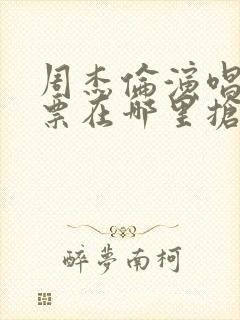 周杰倫演唱
票在哪里搶
醉夢南柯